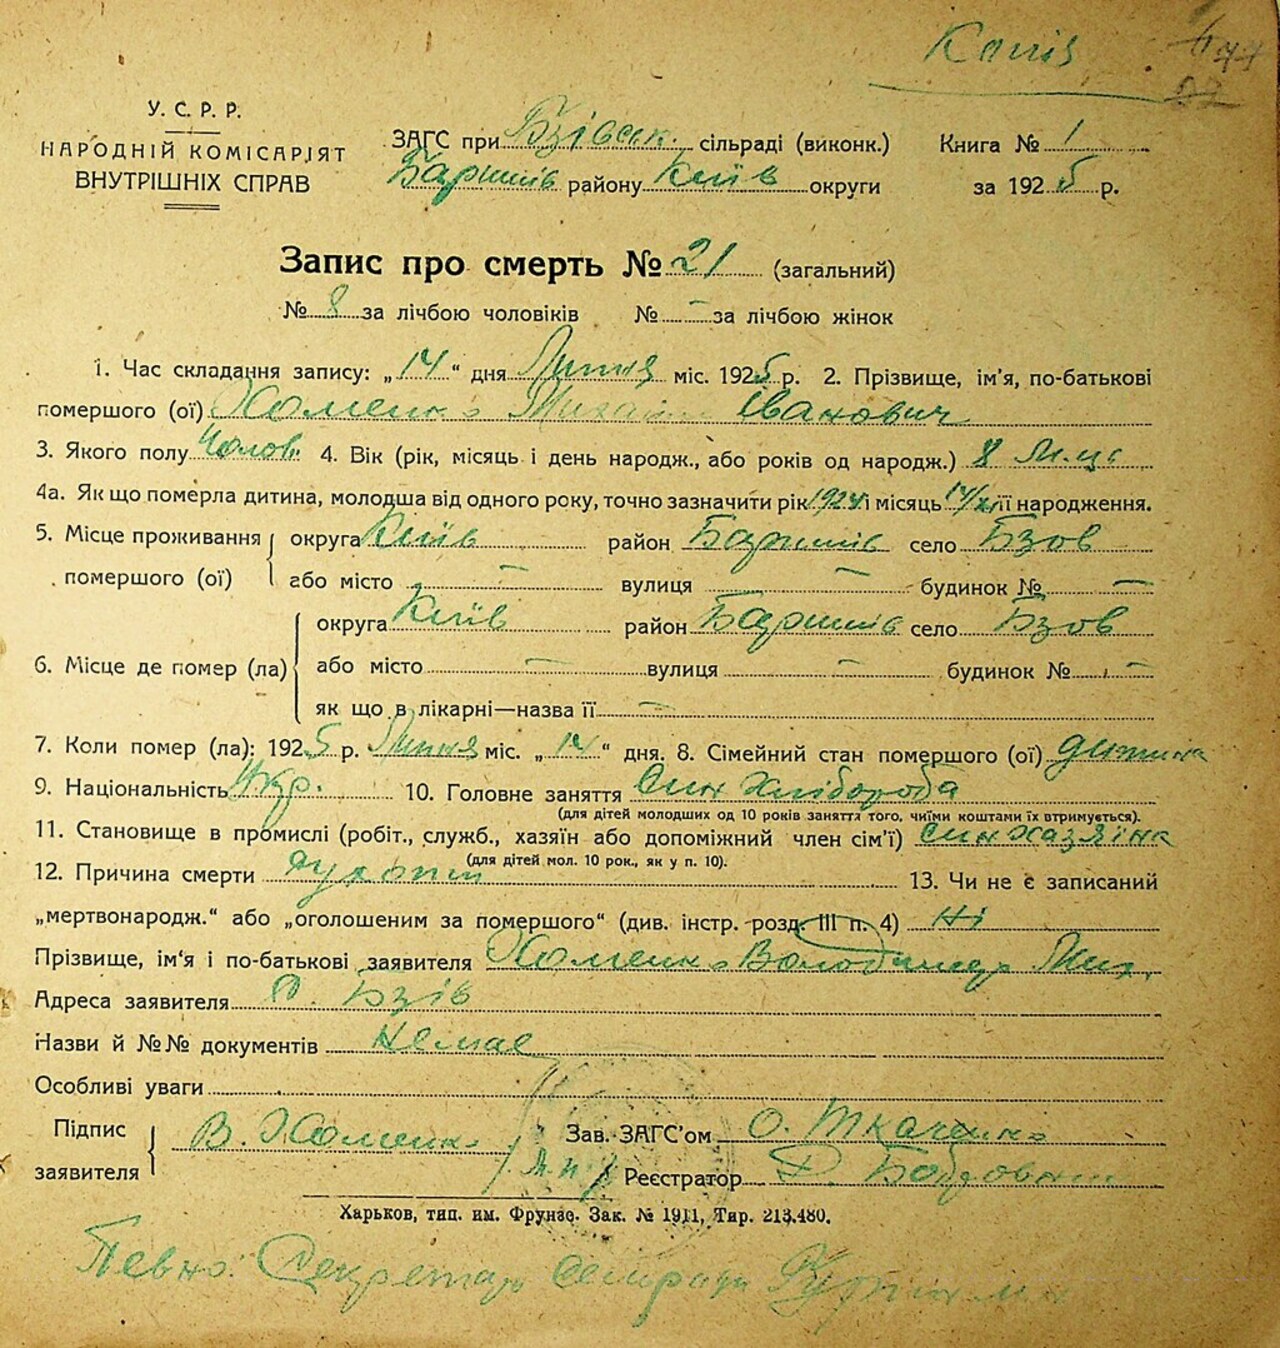 Копія
У. С. Р. Р.
НАРОДНІЙ КОМІСАРІЯТ
ВНУТРІШНІХ СПРАВ
ЗАГС при Бзівськ. сільраді (виконк.)
Баришів району Київ округи
Книга № 1
за 1925 р.
Запис про смерть № 21 (загальний)
№ 8 за лічбою чоловіків № — за лічбою жінок
1. Час складання запису: „14“ дня Липня міс. 1925 р. 2. Прізвище, ім'я, по-батькові
помершого (ої) Хоменко Михайло Іванович
3. Якого полу Чолов. 4. Вік (рік, місяць і день народж., або років од народж.) 8 М-ців
4а. Як що померла дитина, молодша від одного року, точно зазначити рік 1924 і місяць її народження.
5. Місце проживання помершого (ої) округа Київ район Баришів село Бзов
або місто — вулиця — будинок № —
6. Місце де помер (ла) округа Київ район Баришів село Бзов
або місто — вулиця — будинок № —
як що в лікарні—назва її —
7. Коли помер (ла): 1925 р. Липня міс. „14“ дня. 8. Сімейний стан помершого (ої) дитина
9. Національність Укр. 10. Головне заняття Син Хлібороба
(для дітей молодших од 10 років заняття того, чиїми коштами їх втримується).
11. Становище в промислі (робіт., служб., хазяїн або допоміжний член сім'ї) син хазяїна
(для дітей мол. 10 рок., як у п. 10).
12. Причина смерти 13. Чи не є записаний
„мертвонародж.“ або „оголошеним за помершого“ (див. інстр. розд. III п. 4) Ні
Прізвище, ім'я і по-батькові заявителя Хоменко Володимер Мих.
Адреса заявителя с. Бзів
Назви й №№ документів Немає
Особливі уваги
Підпис заявителя В. Хоменко Зав. ЗАГС'ом О. Ткаченко
М. П. Реєстратор
Харьков, тип. им. Фрунзе. Зак. № 1911, Тир. 213.480.
Певно: Секретар Сельради